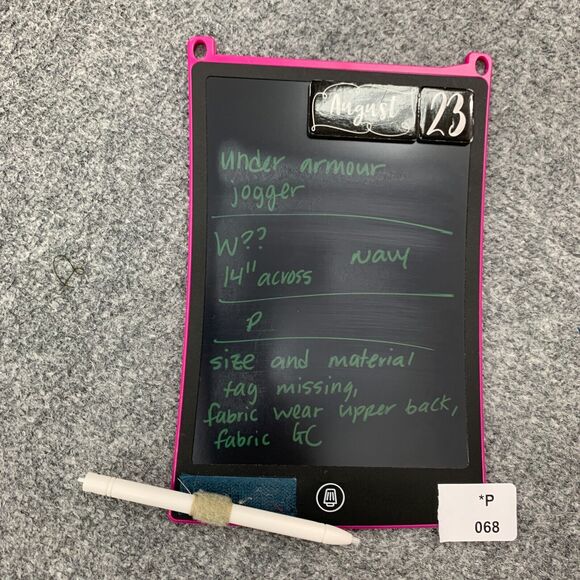 August 23
under armour
jogger
W??
14" across
Navy
P
size and material
tag missing,
fabric wear upper back,
fabric GC
*P
068